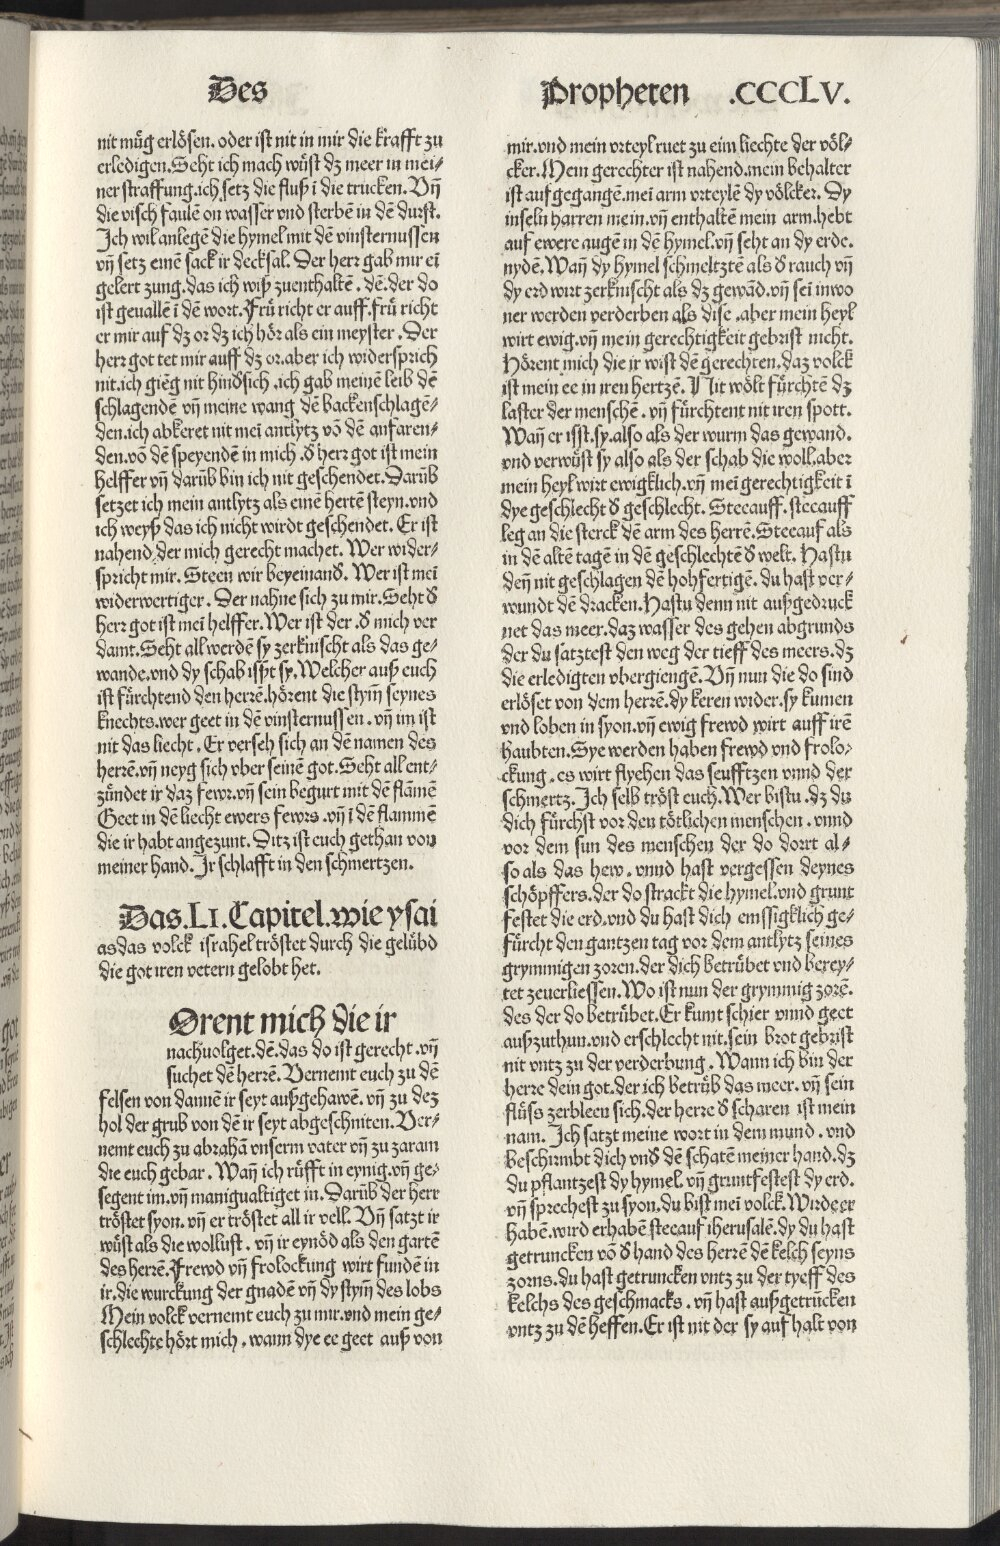 Des Propheten .CCCLV.
nit müg erlösen. oder ist nit in mir die krafft zu
erledigen. Seht ich mach wüst dz meer in mei-
ner straffung. ich setz die fluß ī die trucken. Vñ
die visch faulē on wasser vnd sterbē in dē durst.
Ich wil anlegē die hymel mit dē vinsternussen
vñ setz einē sack ir decksal. Der herr gab mir eī
gelert zung. das ich wiß zuenthaltē. dē. der do
ist geuallē ī dē wort. Frü richt er auff. frü richt
er mir auf dz or dz ich hör als ein meyster. Der
herr got tet mir auff dz or. aber ich widersprich
nit. ich giēg nit hinđsich. ich gab meinē leib dē
schlagendē vñ meine wang dē backenschlagē-
den. ich abkeret nit meī antlytz vō dē anfaren-
den. vō dē speyendē in mich. đ herr got ist mein
helffer vñ darūb bin ich nit geschendet. Darūb
setzet ich mein antlytz als einē hertē steyn. vnd
ich weyß das ich nicht wirdt geschendet. Er ist
nahend der mich gerecht machet. Wer wider-
spricht mir. Steen wir beyeinanđ. Wer ist meī
widerwertiger. Der nahne sich zu mir. Seht đ
herr got ist meī helffer. Wer ist der. đ mich ver
damt. Seht all werdē sy zerknischt als das ge-
wande. vnd dy schab ißt sy. Welcher auß euch
ist fürchtend den herrē. hörent die stym̄ seynes
knechts. wer geet in dē vinsternussen. vñ im ist
nit das liecht. Er verseh sich an dē namen des
herrē. vñ neyg sich vber seinē got. Seht all ent-
zündet ir daz fewr. vñ sein begurt mit dē flāmē
Geet in dē liecht ewers fewrs. vñ ī dē flammē
die ir habt angezunt. Ditz ist euch gethan von
meiner hand. Ir schlafft in den schmertzen.
Das. LI. Capitel. wie ysai
as das volck israhel tröstet durch die gelübd
die got iren vetern gelobt het.
Orent mich die ir
nachuolget. dē. das do ist gerecht. vñ
suchet dē herrē. Vernemt euch zu dē
felsen von dannē ir seyt außgehawē. vñ zu dez
hol der grub von dē ir seyt abgeschniten. Ver-
nemt euch zu abrahā vnserm vater vñ zu zaram
die euch gebar. Wañ ich rüfft in eynig. vñ ge-
segent im. vñ manigualtiget in. Darūb der herr
tröstet syon. vñ er tröstet all ir vell. Vñ satzt ir
wüst als die wollust. vñ ir eynöd als den gartē
des herrē. Frewd vñ frolockung wirt fundē in
ir. die wurckung der gnadē vñ dy stym̄ des lobs
Mein volck vernemt euch zu mir. vnd mein ge-
schlechte hört mich. wann dye ee geet auß von
mir. vnd mein vrteyl ruet zu eim liechte der völ-
cker. Mein gerechter ist nahend. mein behalter
ist aufgegangē. mei arm vrteylē dy völcker. Dy
inseln harren mein. vñ enthaltē mein arm. hebt
auf ewere augē in dē hymel. vñ seht an dy erde.
nydē. Wañ dy hymel schmeltztē als đ rauch vñ
dy erd wirt zerknischt als dz gewād. vñ sei inwo
ner werden verderben als dise. aber mein heyl
wirt ewig. vñ mein gerechtigkeit gebrist nicht.
Hörent mich die ir wist dē gerechten. daz volck
ist mein ee in iren hertzē. Nit wölt fürchtē dz
laster der menschē. vñ fürchtent nit iren spott.
Wañ er isst. sy. also als der wurm das gewand.
vnd verwüst sy also als der schab die woll. aber
mein heyl wirt ewigklich. vñ mei gerechtigkeit ī
dye geschlecht đ geschlecht. Steeauff. steeauff
leg an die sterck dē arm des herrē. Steeauf als
in dē altē tagē in dē geschlechtē đ welt. Hastu
deñ nit geschlagen dē hohfertigē. du hast ver-
wundt dē dracken. Hastu denn nit außgedruck
net das meer. daz wasser des gehen abgrunds
der du satztest den weg der tieff des meers. dz
die erledigten vbergiengē. Vñ nun die do sind
erlöset von dem herrē. dy keren wider. sy kumen
vnd loben in syon. vñ ewig frewd wirt auff irē
haubten. Sye werden haben frewd vnd frolo-
ckung. es wirt flyehen das seufftzen vnnd der
schmertz. Ich selb tröst euch. Wer bistu. dz du
dich fürchst vor den tötlichen menschen. vnnd
vor dem sun des menschen der do dorrt al-
so als das hew. vnnd hast vergessen deynes
schöpffers. der do strackt die hymel. vnd grunt
festet die erd. vnd du hast dich emssigklich ge-
fürcht den gantzen tag vor dem antlytz seines
grymmigen zoren. der dich betrübet vnd berey-
tet zeuerliessen. Wo ist nun der grymmig zorē.
des der do betrübet. Er kumt schier vnnd geet
außzuthun. vnd erschlecht nit. sein brot gebrist
nit vntz zu der verderbung. Wann ich bin der
herre dein got. der ich betrüb das meer. vñ sein
flüss zerbleen sich. der herre đ scharen ist mein
nam. Ich satzt meine wort in dem mund. vnd
beschirmbt dich vnđ dē schatē meiner hand. dz
du pflantzest dy hymel. vñ gruntfestest dy erd.
vñ sprechest zu syon. du bist mei volck. Wirde er
habē. wird erhabē steeauf iherusalē. dy du hast
getruncken vō đ hand des herrē dē kelch seyns
zorns. du hast getruncken vntz zu der tyeff des
kelchs des geschmacks. vñ hast außgetrūcken
vntz zu dē heffen. Er ist nit der sy auf halt von